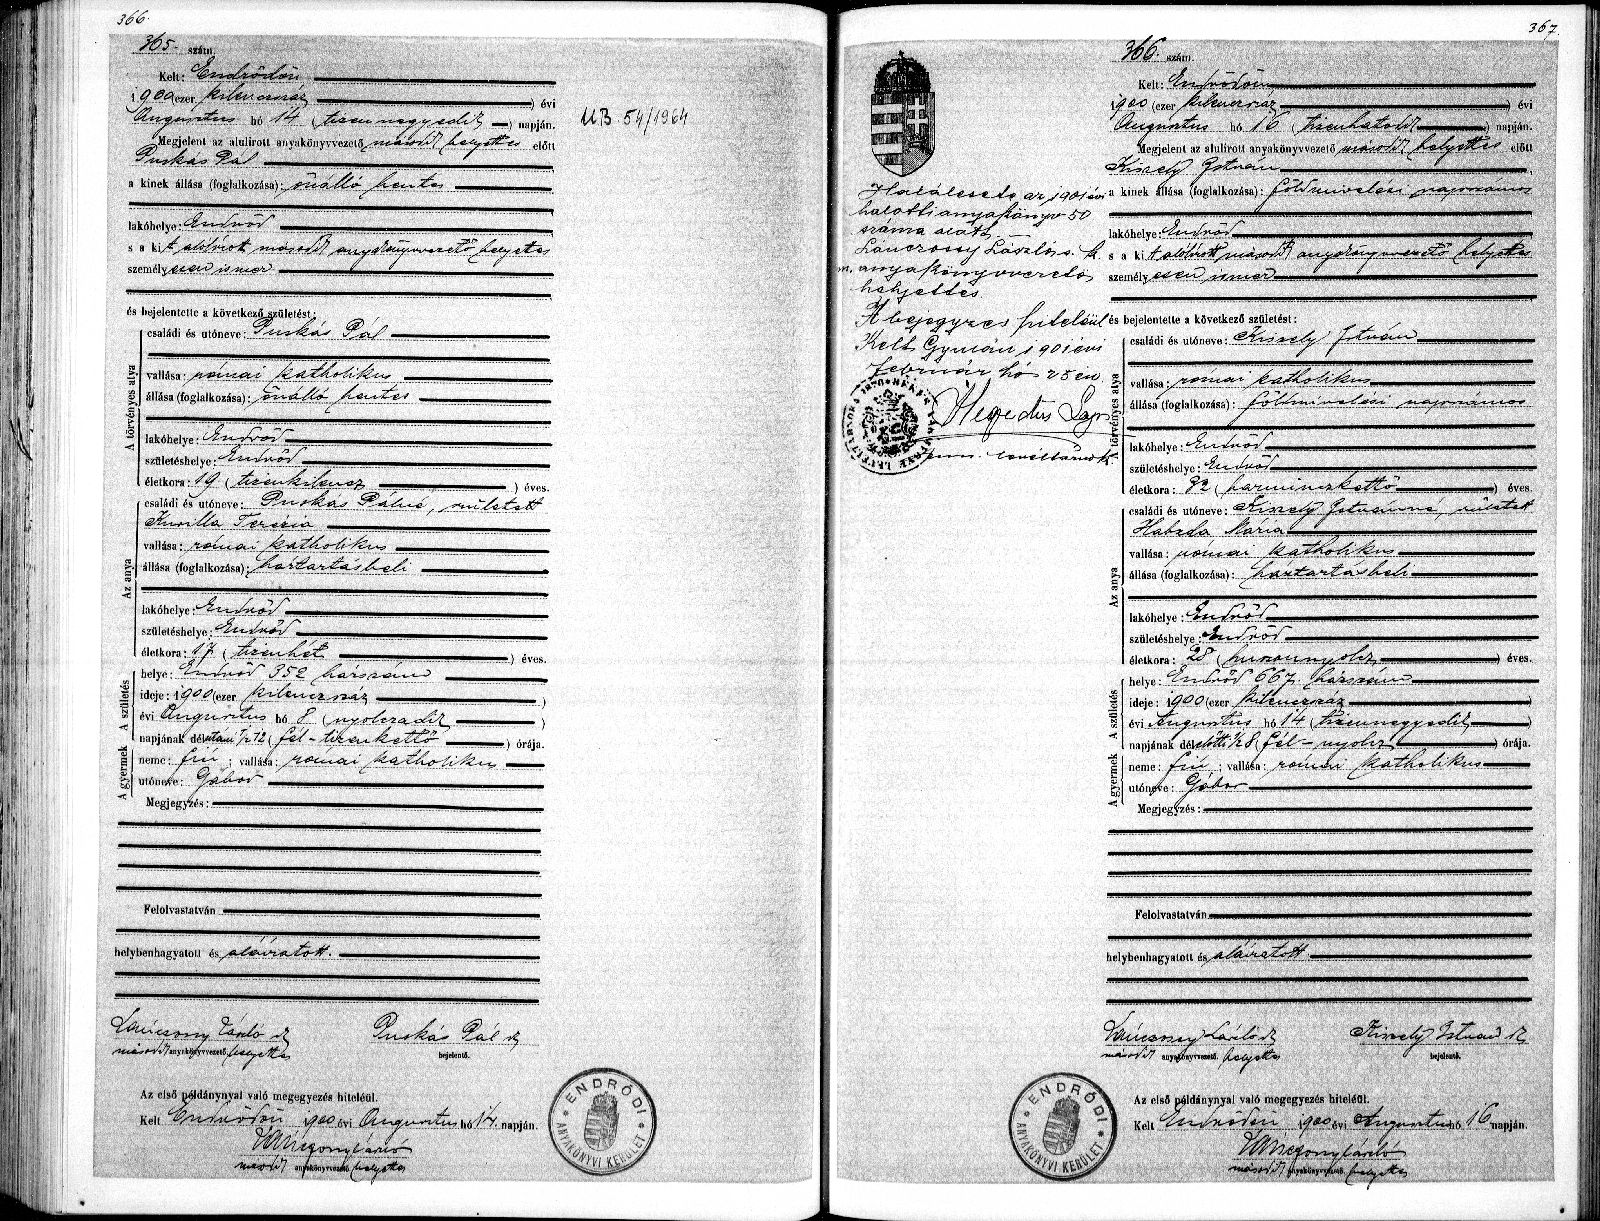 366.
365. szám.
Kelt: Endrődön
1900 (ezer kilenczszáz) évi
Augusztus hó 14 (tizennegyedik) napján.
Megjelent az alulirott anyakönyvvezető második helyettes előtt
Puskás Pál
a kinek állása (foglalkozása): önálló hentes
lakóhelye: Endrőd
s a kit alólirott második anyakönyvvezető helyettes
személyesen ismer
és bejelentette a következő születést:
A törvényes atya
családi és utóneve: Puskás Pál
vallása: római katholikus
állása (foglalkozása): önálló hentes
lakóhelye: Endrőd
születéshelye: Endrőd
életkora: 19 (tizenkilencz) éves.
Az anya
családi és utóneve: Puskás Pálné, született
Terézia
vallása: római katholikus
állása (foglalkozása): háztartásbeli
lakóhelye: Endrőd
születéshelye: Endrőd
életkora: 17 (tizenhét) éves.
A születés
helye: Endrőd 352 házszám
ideje: 1900 (ezer kilenczszáz)
évi Augusztus hó 8 (nyolczadik)
napjának délutáni 1/2 12 (fél-tizenkettő) órája.
A gyermek
neme: fiú; vallása: római katholikus
utóneve: Gábor
Megjegyzés:
Felolvastatván
helybenhagyatott és aláiratott.
Lánczsony László sk
második anyakönyvvezető helyettes
Puskás Pál sk
bejelentő.
Az első példánynyal való megegyezés hiteléül.
Kelt Endrődön 1900 évi Augusztus hó 14. napján.
második anyakönyvvezető helyettes
ENDRŐDI ANYAKÖNYVI KERÜLET
UB 54/1964
367.
Halálesete az 1901 évi
halotti anyakönyv 50
száma alatt.
László s. k.
anyakönyvvezető
helyettes.
A bejegyzés hiteléül
Kelt Gyulán 1901 évi
február hó 25 én
Hegedüs
366. szám.
Kelt: Endrődön
1900 (ezer kilenczszáz) évi
Augusztus hó 16 (tizenhatodik) napján.
Megjelent az alulirott anyakönyvvezető második helyettes előtt
Kiszely István
a kinek állása (foglalkozása): földmivelési napszámos
lakóhelye: Endrőd
s a kit alólirott második anyakönyvvezető helyettes
személyesen ismer
és bejelentette a következő születést:
A törvényes atya
családi és utóneve: Kiszely István
vallása: római katholikus
állása (foglalkozása): földmivelési napszámos
lakóhelye: Endrőd
születéshelye: Endrőd
életkora: 32 (harminczkettő) éves.
Az anya
családi és utóneve: Kiszely Istvánné, született
Mária
vallása: római katholikus
állása (foglalkozása): háztartásbeli
lakóhelye: Endrőd
születéshelye: Endrőd
életkora: 28 (huszonnyolcz) éves.
A születés
helye: Endrőd 667. házszám
ideje: 1900 (ezer kilenczszáz)
évi Augusztus hó 14 (tizennegyedik)
napjának délelőtti 1/2 8 (fél-nyolcz) órája.
A gyermek
neme: fiú; vallása: római katholikus
utóneve: Gábor
Megjegyzés:
Felolvastatván
helybenhagyatott és aláiratott
László sk
második anyakönyvvezető helyettes
Kiszely István sk
bejelentő.
Az első példánynyal való megegyezés hiteléül.
Kelt Endrődön 1900 évi Augusztus hó 16 napján.
második anyakönyvvezető helyettes
ENDRŐDI ANYAKÖNYVI KERÜLET